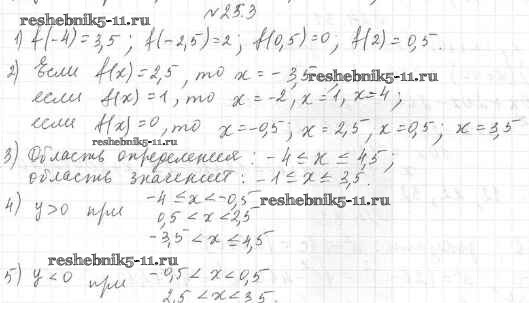 №25.3
reshebnik5-11.ru
1) f(-4)=3,5; f(-2,5)=2; f(0,5)=0; f(2)=0,5.
2) Если f(x)=2,5, то x=-3,5 reshebnik5-11.ru
если f(x)=1, то x=-2, x=1, x=4;
если f(x)=0, то x=-0,5; x=2,5, x=0,5; x=3,5
reshebnik5-11.ru
3) Область определения: -4≤x≤4,5;
область значений: -1≤x≤3,5.
4) y>0 при -4≤x<-0,5 reshebnik5-11.ru
0,5<x<2,5
-3,5<x≤4,5
reshebnik5-11.ru
5) y<0 при -0,5<x<0,5
2,5<x<3,5.